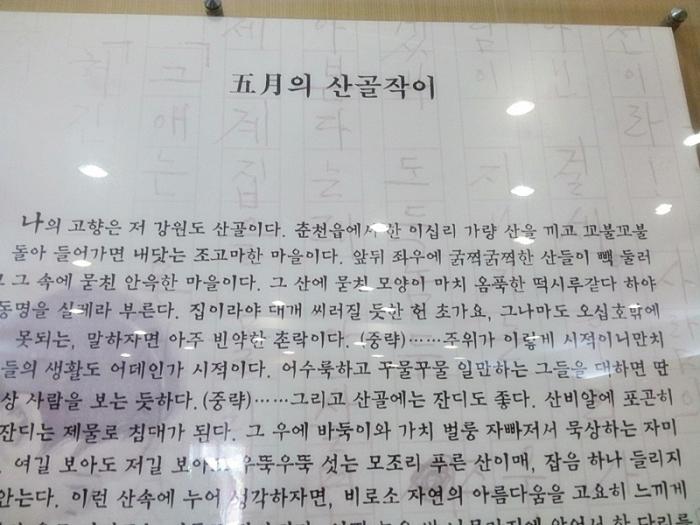 五月의 산골작이
나의 고향은 저 강원도 산골이다. 춘천읍에서 한 이십리 가량 산을 끼고 꼬불꼬불
돌아 들어가면 내닷는 조고마한 마을이다. 앞뒤 좌우에 굵찍굵찍한 산들이 빽 둘러
그 속에 묻친 안윽한 마을이다. 그 산에 묻친 모양이 마치 옴푹한 떡시루같다 하야
동명을 실레라 부른다. 집이라야 대개 씨러질 듯한 헌 초가요, 그나마도 오십호밖에
못되는, 말하자면 아주 빈약한 촌락이다. (중략)……주위가 이렇게 시적이니만치
들의 생활도 어데인가 시적이다. 어수룩하고 꾸물꾸물 일만하는 그들을 대하면 딴
상 사람을 보는 듯하다.(중략)……그리고 산골에는 잔디도 좋다. 산비알에 포곤히
잔디는 제물로 침대가 된다. 그 우에 바둑이와 가치 벌룽 자빠저서 묵상하는 자미
여길 보아도 저길 보아도 우뚝우뚝 섯는 모조리 푸른 산이매, 잡음 하나 들리지
안는다. 이런 산속에 누어 생각하자면, 비로소 자연의 아름다움을 고요히 느끼게